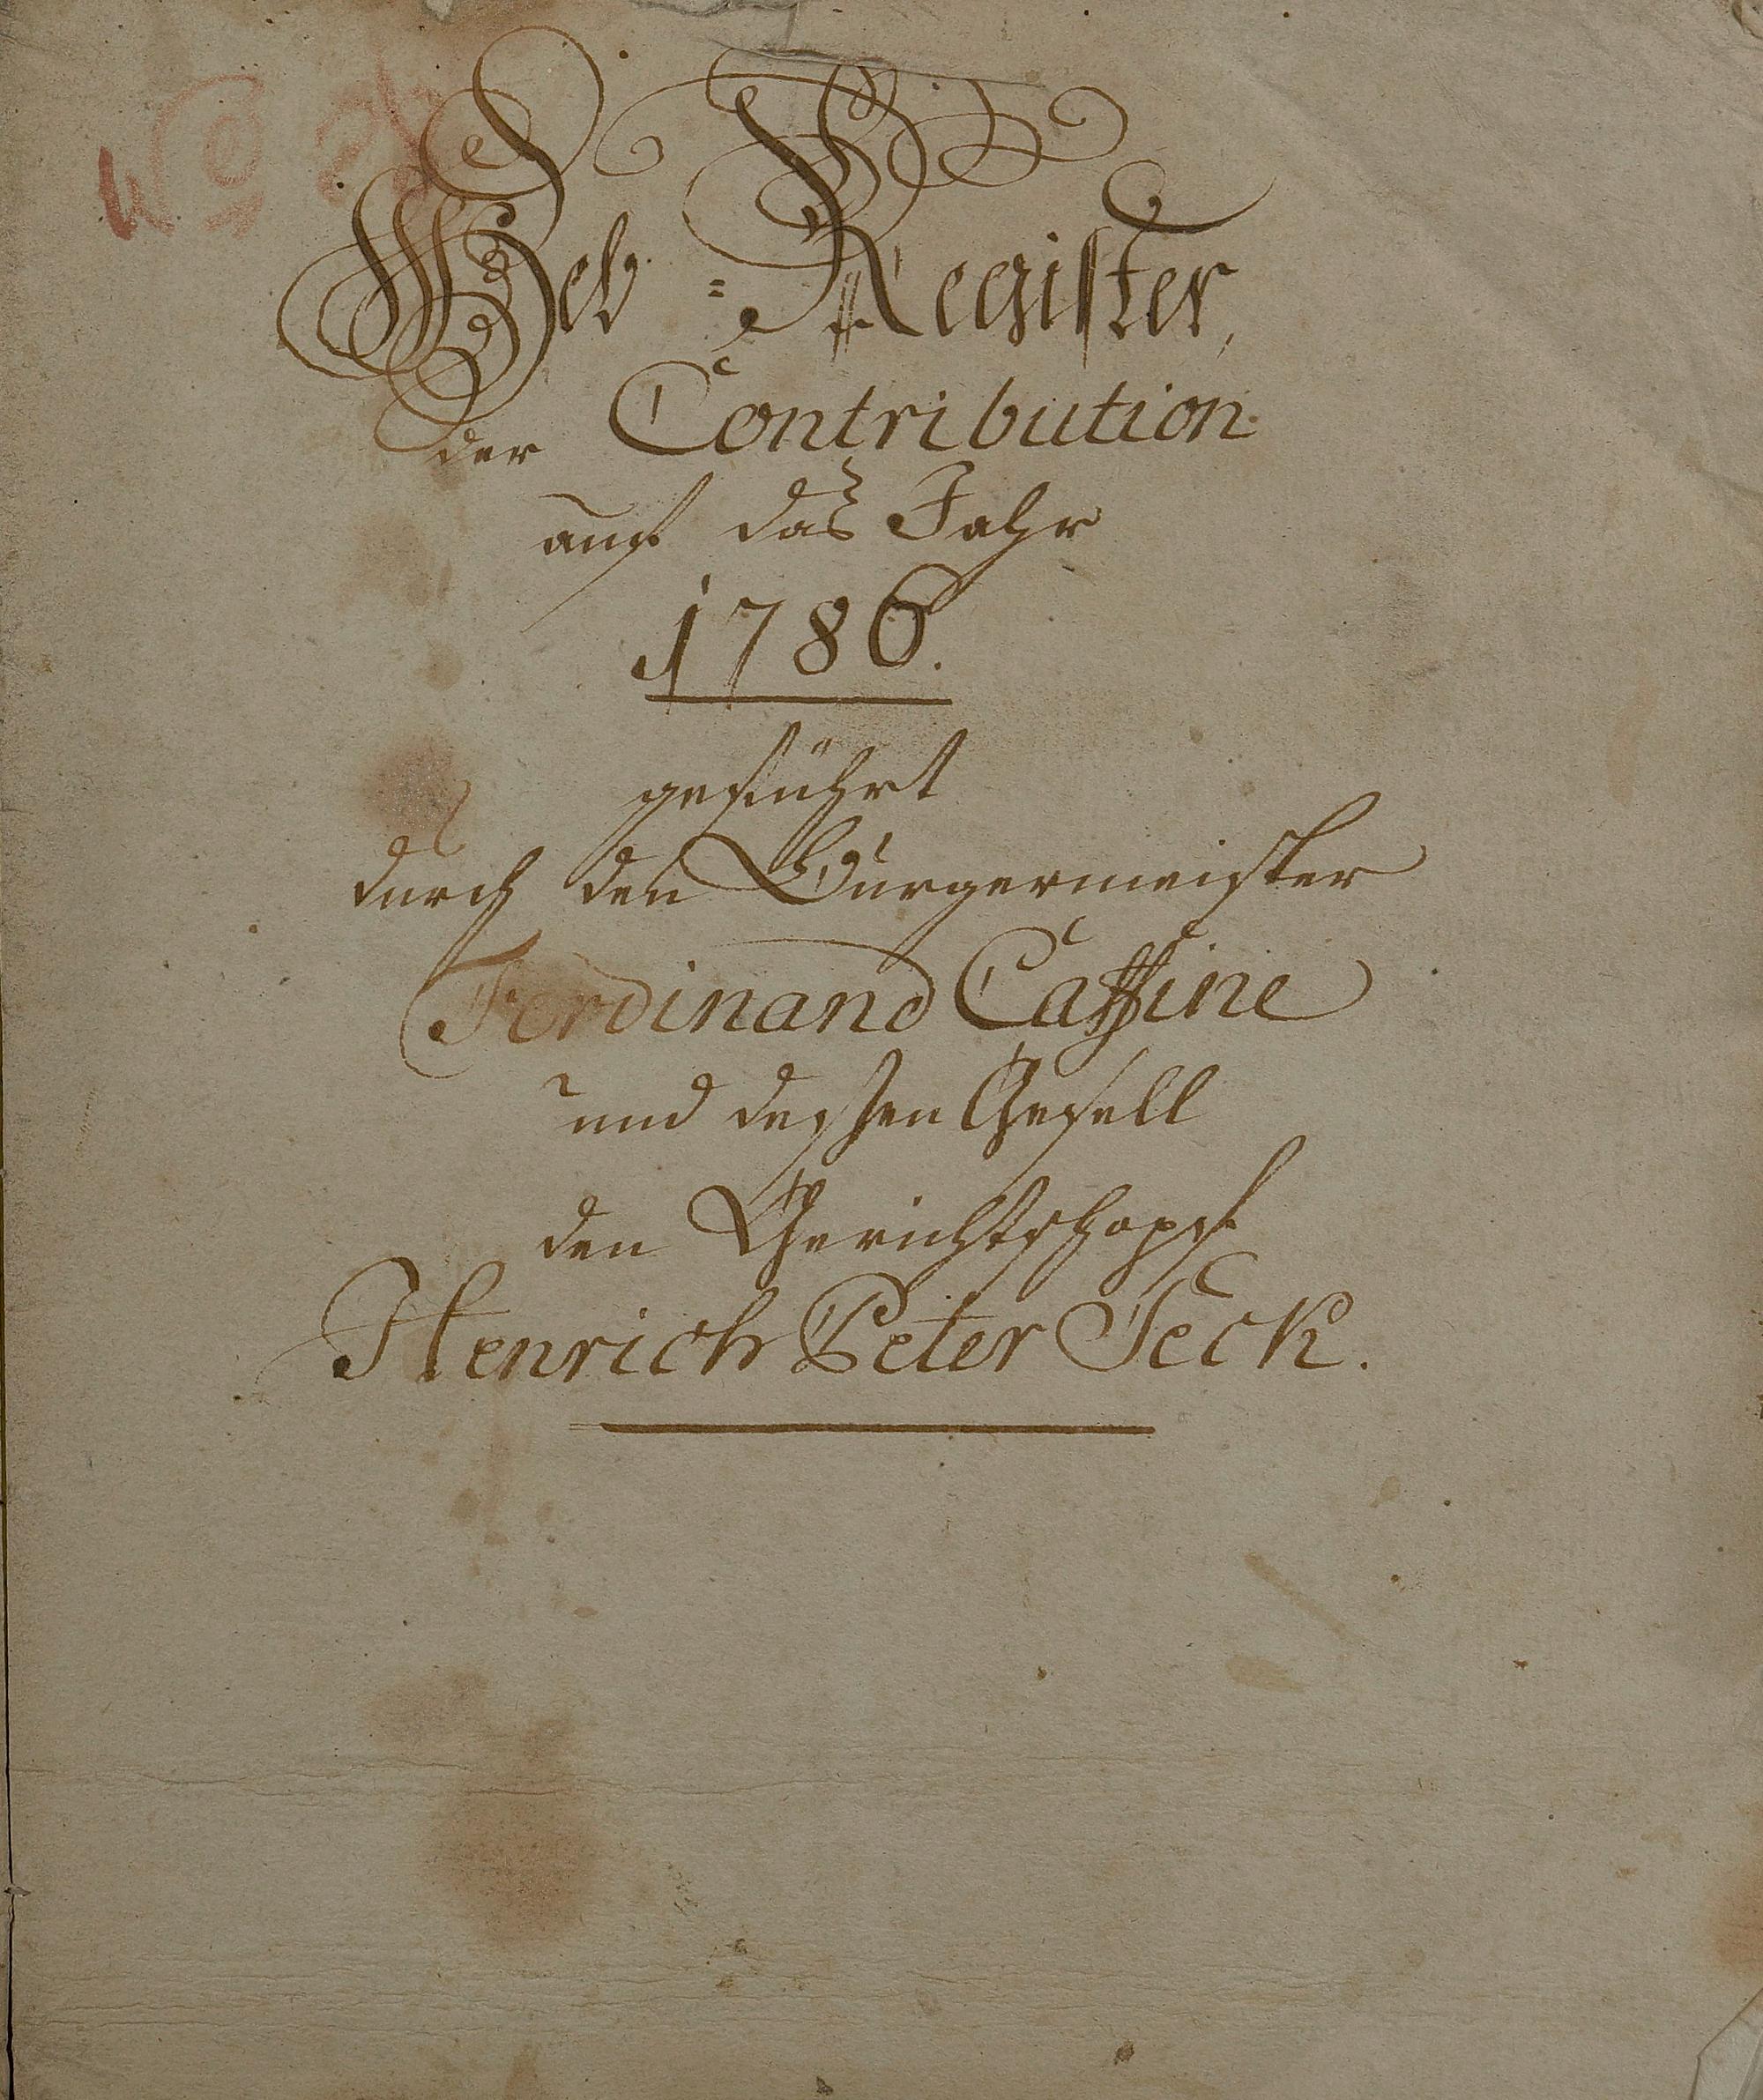 Heb=Register,
der Contribution
auf das Jahr
1786.
geführt
durch den Burgermeister
Ferdinand Cassine
und dessen Gesell
den Gerichtschopf
Henrich Peter Jeck.